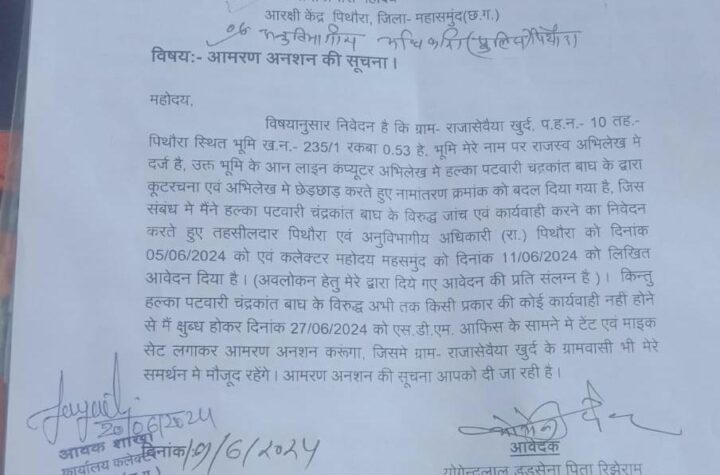 आरक्षी केंद्र पिथौरा, जिला- महासमुंद(छ.ग.)
विषय:- आमरण अनशन की सूचना।
महोदय,
विषयानुसार निवेदन है कि ग्राम- राजासेवैया खुर्द, प.ह.न.- 10 तह.-
पिथौरा स्थित भूमि ख.न.- 235/1 रकबा 0.53 हे. भूमि मेरे नाम पर राजस्व अभिलेख मे
दर्ज है, उक्त भूमि के आन लाइन कंप्यूटर अभिलेख मे हल्का पटवारी चंद्रकांत बाघ के द्वारा
कूटरचना एवं अभिलेख मे छेड़छाड़ करते हुए नामांतरण क्रमांक को बदल दिया गया है, जिस
संबंध मे मैंने हल्का पटवारी चंद्रकांत बाघ के विरुद्ध जांच एवं कार्यवाही करने का निवेदन
करते हुए तहसीलदार पिथौरा एवं अनुविभागीय अधिकारी (रा.) पिथौरा को दिनांक
05/06/2024 को एवं कलेक्टर महोदय महसमुंद को दिनांक 11/06/2024 को लिखित
आवेदन दिया है। (अवलोकन हेतु मेरे द्वारा दिये गए आवेदन की प्रति संलग्न है )। किन्तु
हल्का पटवारी चंद्रकांत बाघ के विरुद्ध अभी तक किसी प्रकार की कोई कार्यवाही नहीं होने
से मैं क्षुब्ध होकर दिनांक 27/06/2024 को एस.डी.एम. आफिस के सामने मे टेंट एवं माइक
सेट लगाकर आमरण अनशन करूंगा, जिसमे ग्राम- राजासेवैया खुर्द के ग्रामवासी भी मेरे
समर्थन मे मौजूद रहेंगे। आमरण अनशन की सूचना आपको दी जा रही है।
20/06/2024
आवक शाखा
कार्यालय कलेक्टर
दिनांक /6/2024
आवेदक